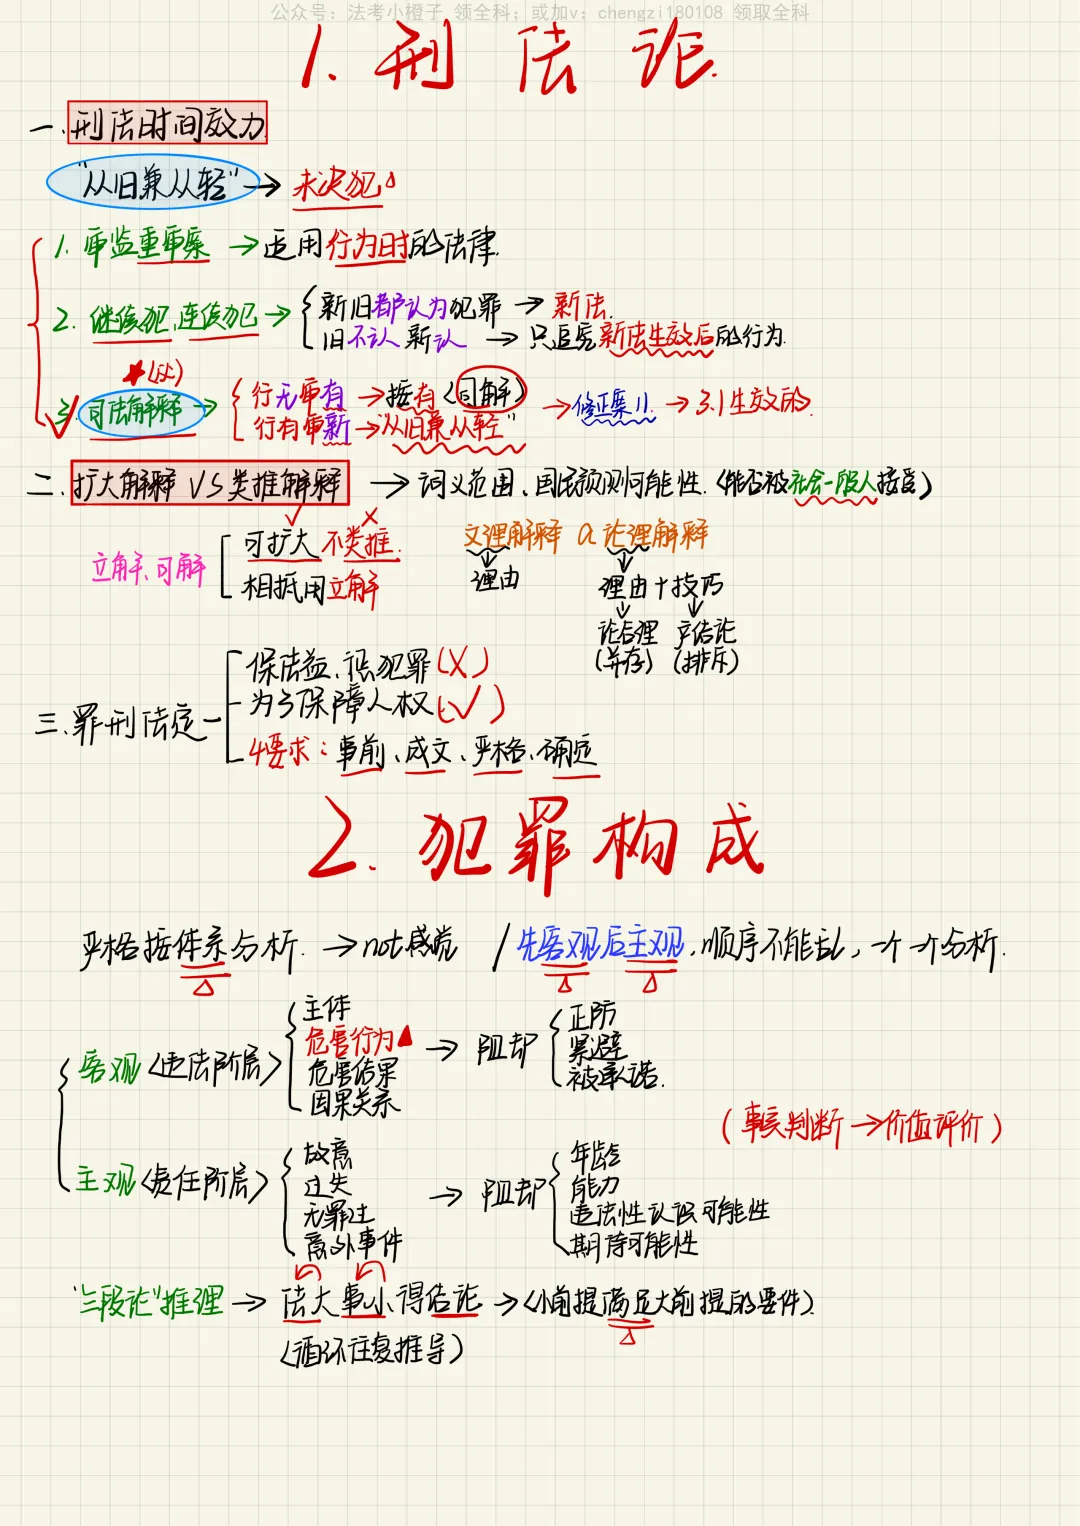 公众号：法考小橙子 领全科；或加v：chengzi180108 领取全科
1. 刑法论
一.刑法时间效力
"从旧兼从轻" → 未决犯
1. 审监重审案 → 适用行为时的法律.
2. 继续犯、连续犯 →
新旧都认为犯罪 → 新法.
旧不认 新认 → 只追究新法生效后的行为.
3. 司法解释 →
行无审有 → 按有（司解）
行有审新 → "从旧兼从轻"
→ 修正案11. → 3.1生效的.
二. 扩大解释 VS 类推解释 → 词义范围、国民预测可能性.（能否被社会一般人接受）
立解、司解
可扩大 不类推.
相抵用立解
文理解释 & 论理解释
理由
理由+技巧
论合理 产结论
(并存) (排斥)
三.罪刑法定
保法益、惩犯罪(X)
为了保障人权(✓)
4要求：事前、成文、严格、确定
2. 犯罪构成
严格按体系分析. → not感觉 / 先客观后主观,顺序不能乱，一个一个分析.
客观（违法阶层）
主体
危害行为
危害结果
因果关系
→ 阻却
正防
紧避
被承诺.
(事实判断 → 价值评价)
主观（责任阶层）
故意
过失
无罪过
意外事件
→ 阻却
年龄
能力
违法性认识可能性
期待可能性
"三段论"推理 → 法大事小得结论 →（小前提满足大前提的要件）
（循环往复推导）